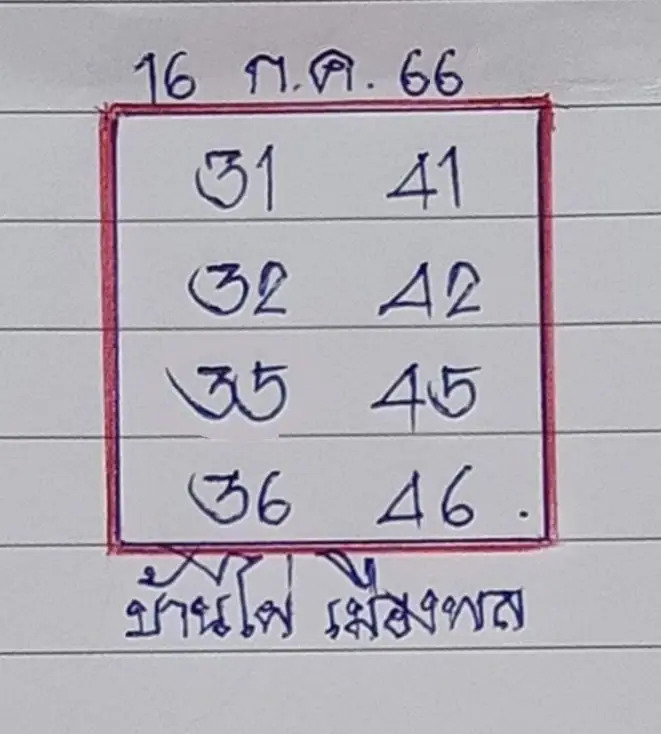 16 ก.ค. 66
31 41
32 42
35 45
36 46.
บ้านไผ่ เมืองพล